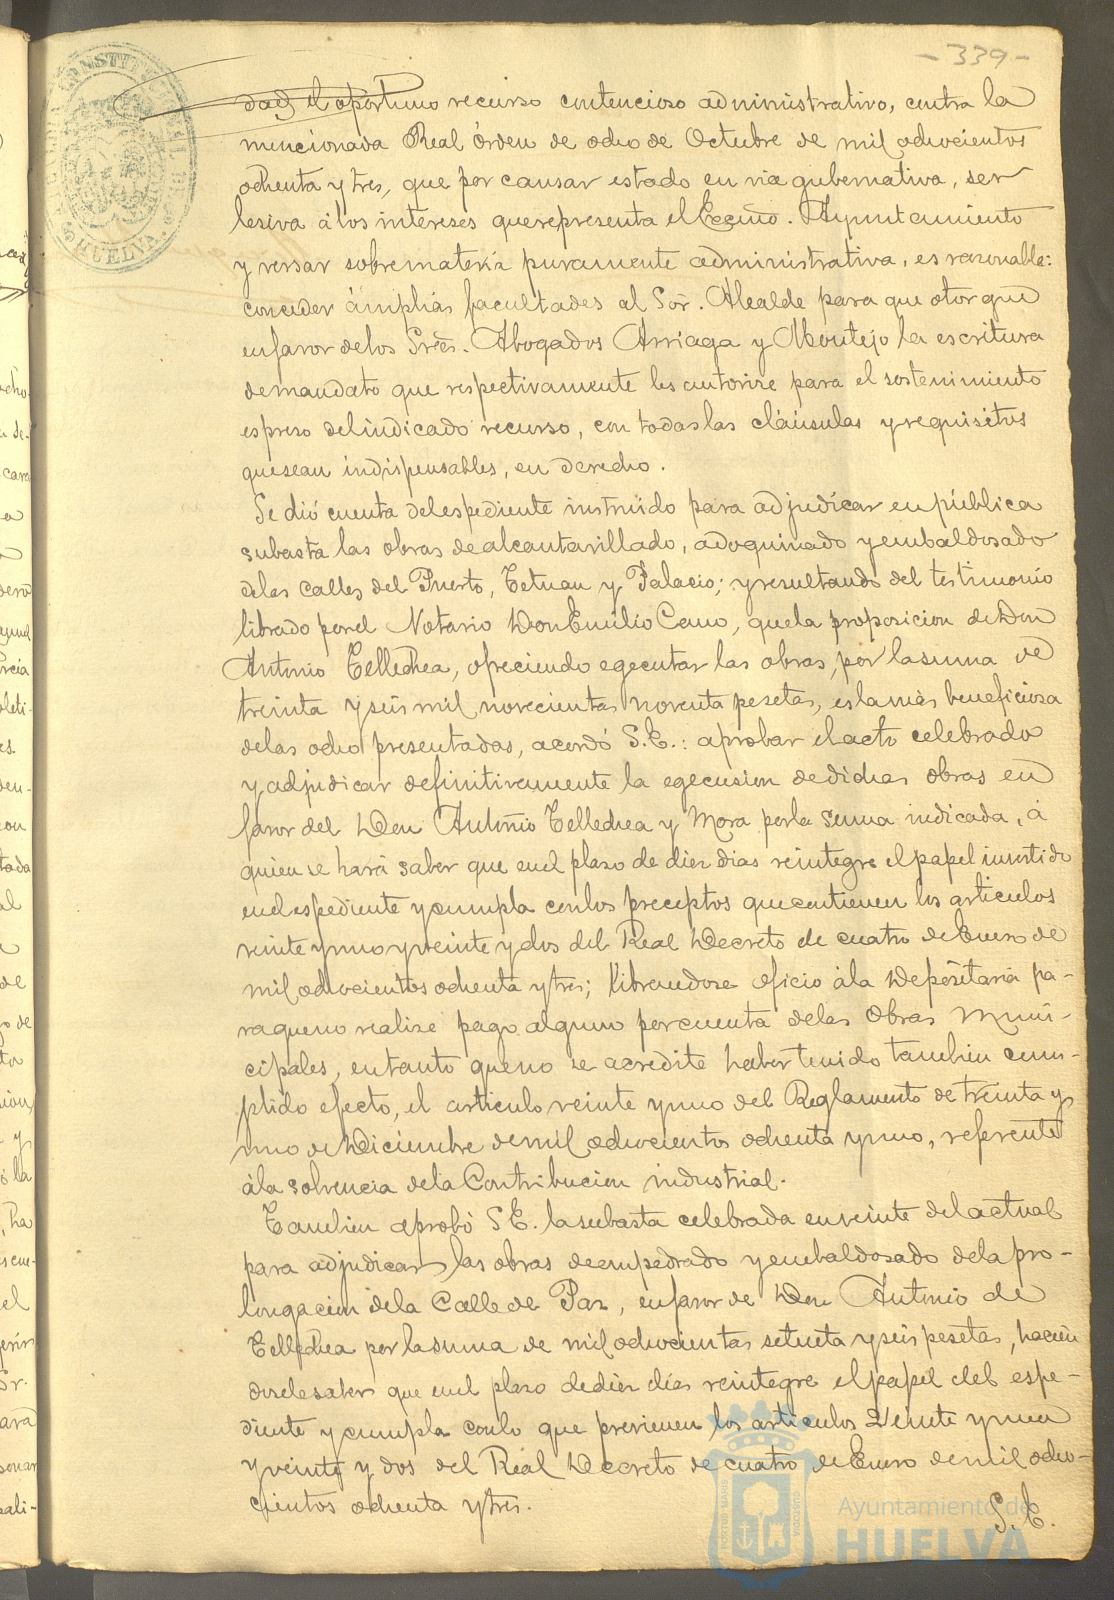 -339-
CONSTIT
HUELVA
dad el oportuno recurso contencioso administrativo, contra la
mencionada Real Órden de ocho de Octubre de mil ochocientos
ochenta y tres, que por causar estado en via gubernativa, ser
lesiva á los intereses que representa el Excmo. Ayuntamiento
y versar sobre materia puramente administrativa, es razonable:
conceder ámplias facultades al Sor. Alcalde para que otorgue
en favor de los Sres. Abogados Arriaga y Montejo la escritura
de mandato que respectivamente les autorize para el sostenimiento
espreso del indicado recurso, con todas las cláusulas y requisitos
que sean indispensables, en derecho.
Se dió cuenta del espediente instruido para adjudicar en pública
subasta las obras de alcantarillado, adoquinado y embaldosado
de las calles del Puerto, Tetuan y Palacio; y resultando del testimonio
librado por el Notario Don Emilio Cano, que la proposicion de Don
Antonio Tellechea, ofreciendo egecutar las obras, por la suma de
treinta y seis mil novecientas noventa pesetas, es la más beneficiosa
de las ocho presentadas, acordó S.E.: aprobar el acto celebrado
y adjudicar definitivamente la egecusion de dichas obras en
favor del Don Antonio Tellechea y Mora por la suma indicada, á
quien se hará saber que en el plazo de diez dias reintegre el papel invertido
en el espediente y cumpla con los preceptos que contienen los articulos
veinte y uno y veinte y dos del Real Decreto de cuatro de Enero de
mil ochocientos ochenta y tres; librandose oficio á la Depositaria pa-
ra que no realize pago alguno por cuenta de las Obras Muni-
cipales, en tanto que no se acredite haber tenido tambien cum-
plido efecto, el articulo veinte y uno del Reglamento de treinta y
uno de Diciembre de mil ochocientos ochenta y uno, referente
á la solvencia de la Contribucion industrial.
Tambien aprobó S.E. la subasta celebrada en veinte del actual
para adjudicar las obras de empedrado y embaldosado de la pro-
longacion de la Calle de Paz, en favor de Don Antonio de
Tellechea por la suma de mil ochocientas setenta y seis pesetas, hacien
dosele saber que en el plazo de diez dias reintegre el papel del espe-
diente y cumpla con lo que previenen los articulos Veinte y uno
y veinte y dos del Real Decreto de cuatro de Enero de mil ocho-
cientos ochenta y tres.
S.E.
Ayuntamiento de
HUELVA